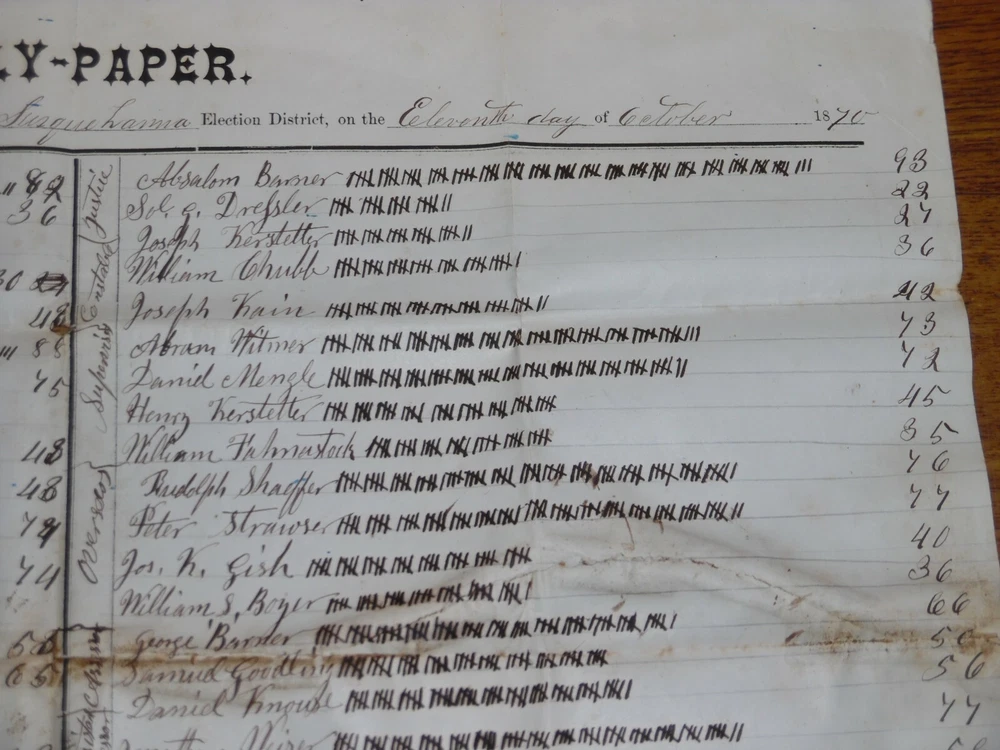 LY-PAPER.
Susquehanna Election District, on the Eleventh day of October 1870
Justice
Absalom Barner 93
36 Sol. G. Dressler 22
Constable
Joseph Kerstetter 27
William Chubb 36
30
48 Joseph Kain 42
Supervisor
88 Abram Witmer 73
75 Daniel Mengle 72
Henry Kerstetter 45
48 William Fahnastock 35
Overseers
48 Rudolph Shaffer 76
74 Peter Strawser 77
Jos. K. Gish 40
74 William S. Boyer 36
George Barner 66
65 Samuel Goodling 50
Daniel Knouse 56
77